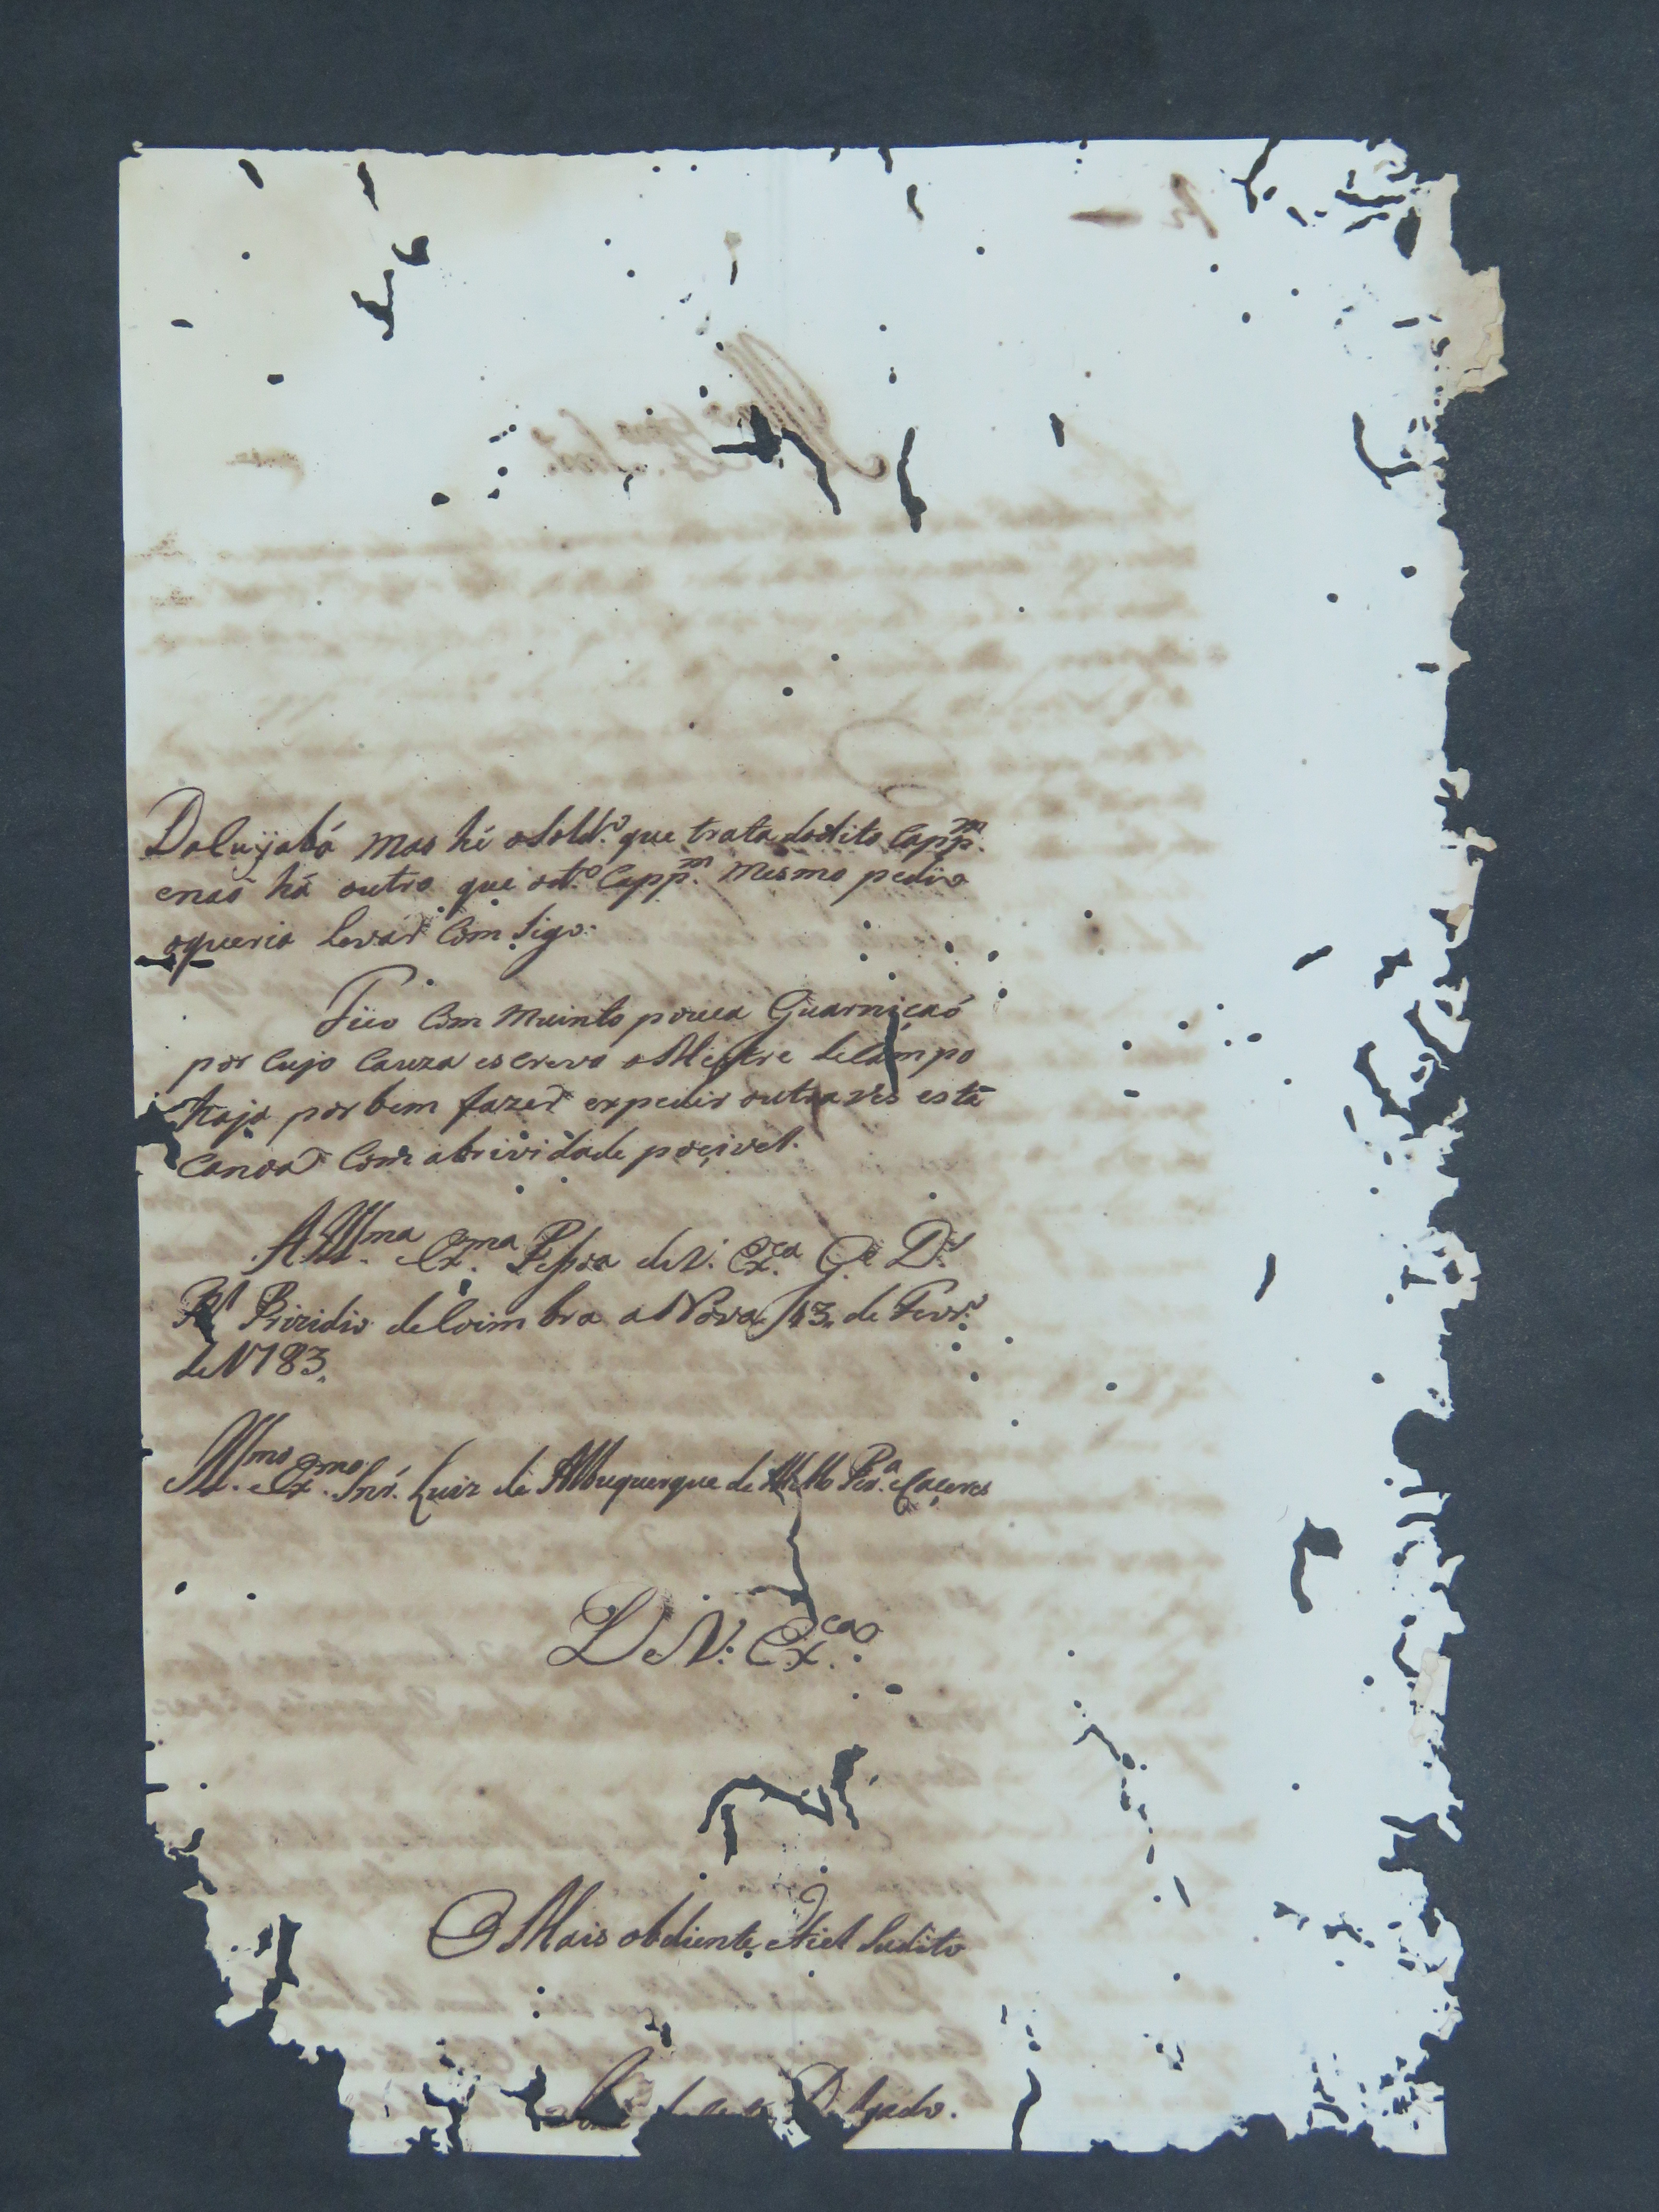 DoCuyabá mas hé oSold.º que trata dodito Capp.m
enaõ há outro que od.º Capp.m mesmo pedio
oqueria levar Com sigo.
Fico Com muinto pouca Guarniçaõ
por Cujo Cauza escrevo oMestre deCampo
haja por bem fazer expedir outra ves està
Canoa Com abrividade poçivel.
A Ill.ma Ex.ma Pessoa deV. Ex.ca G.e D.s
R.l Prizidio deCoimbra aNova 13 de Fevr.º
de 1783.
Ill.mo Ex.mo Snr. Luiz de Albuquerque de Mello Per.a eCaçeres
DeV. Ex.ca
OMais obdiente efiel Sudito
Delgado.